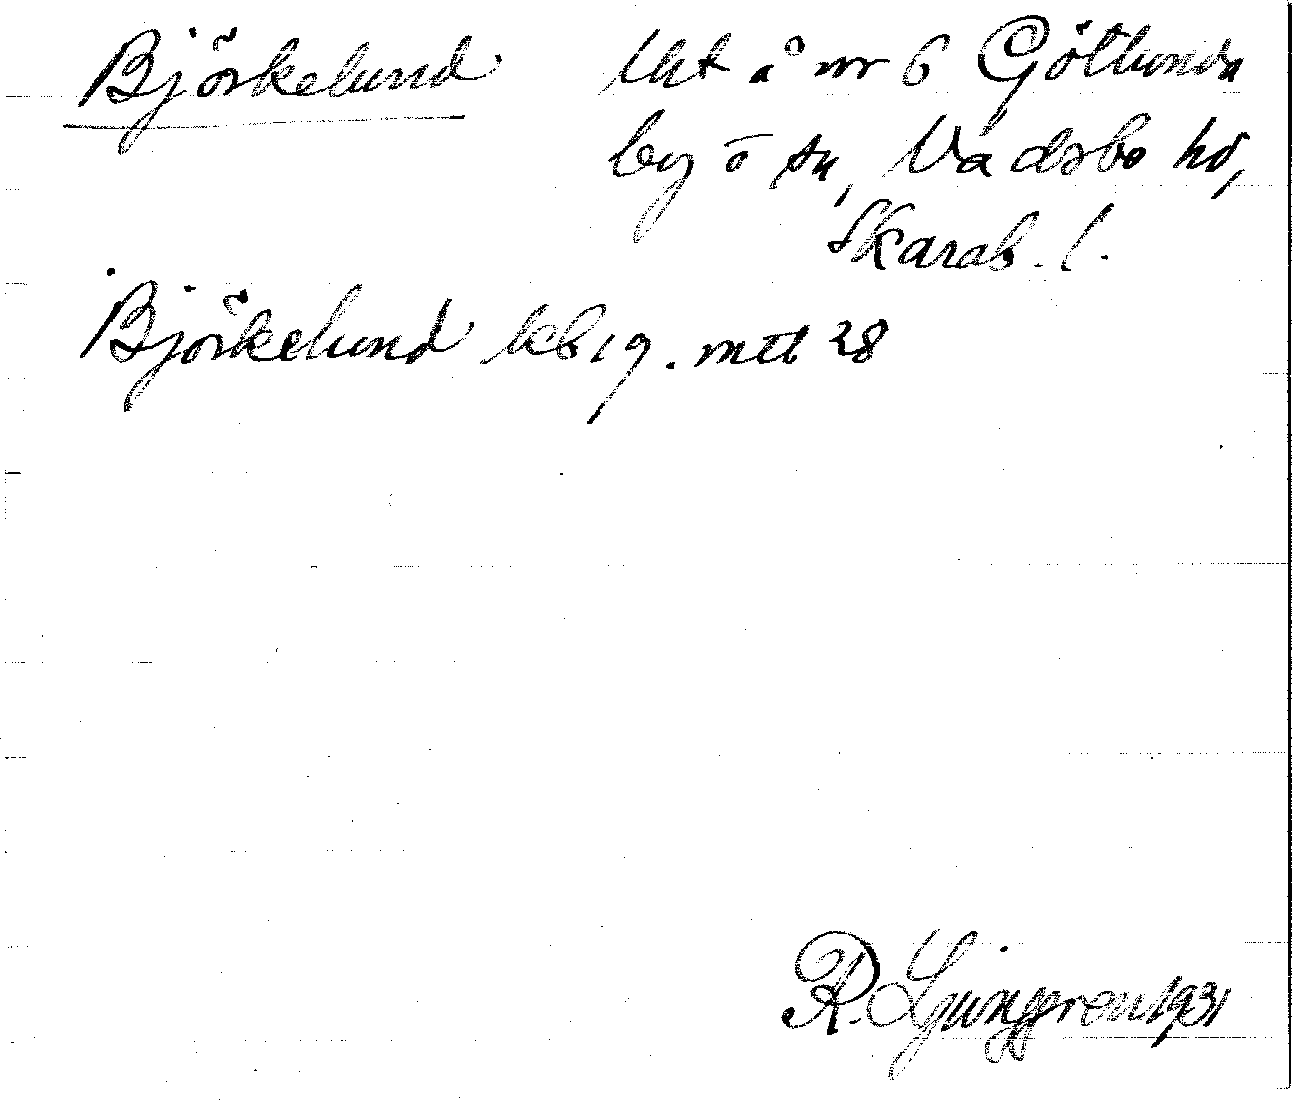 Björkelund Uht å nr 6 Götlunda
by o sn, Vadsbo hd,
Skarab. l.
Björkelund kb 19. mtl 28
R. Ljunggren 1931